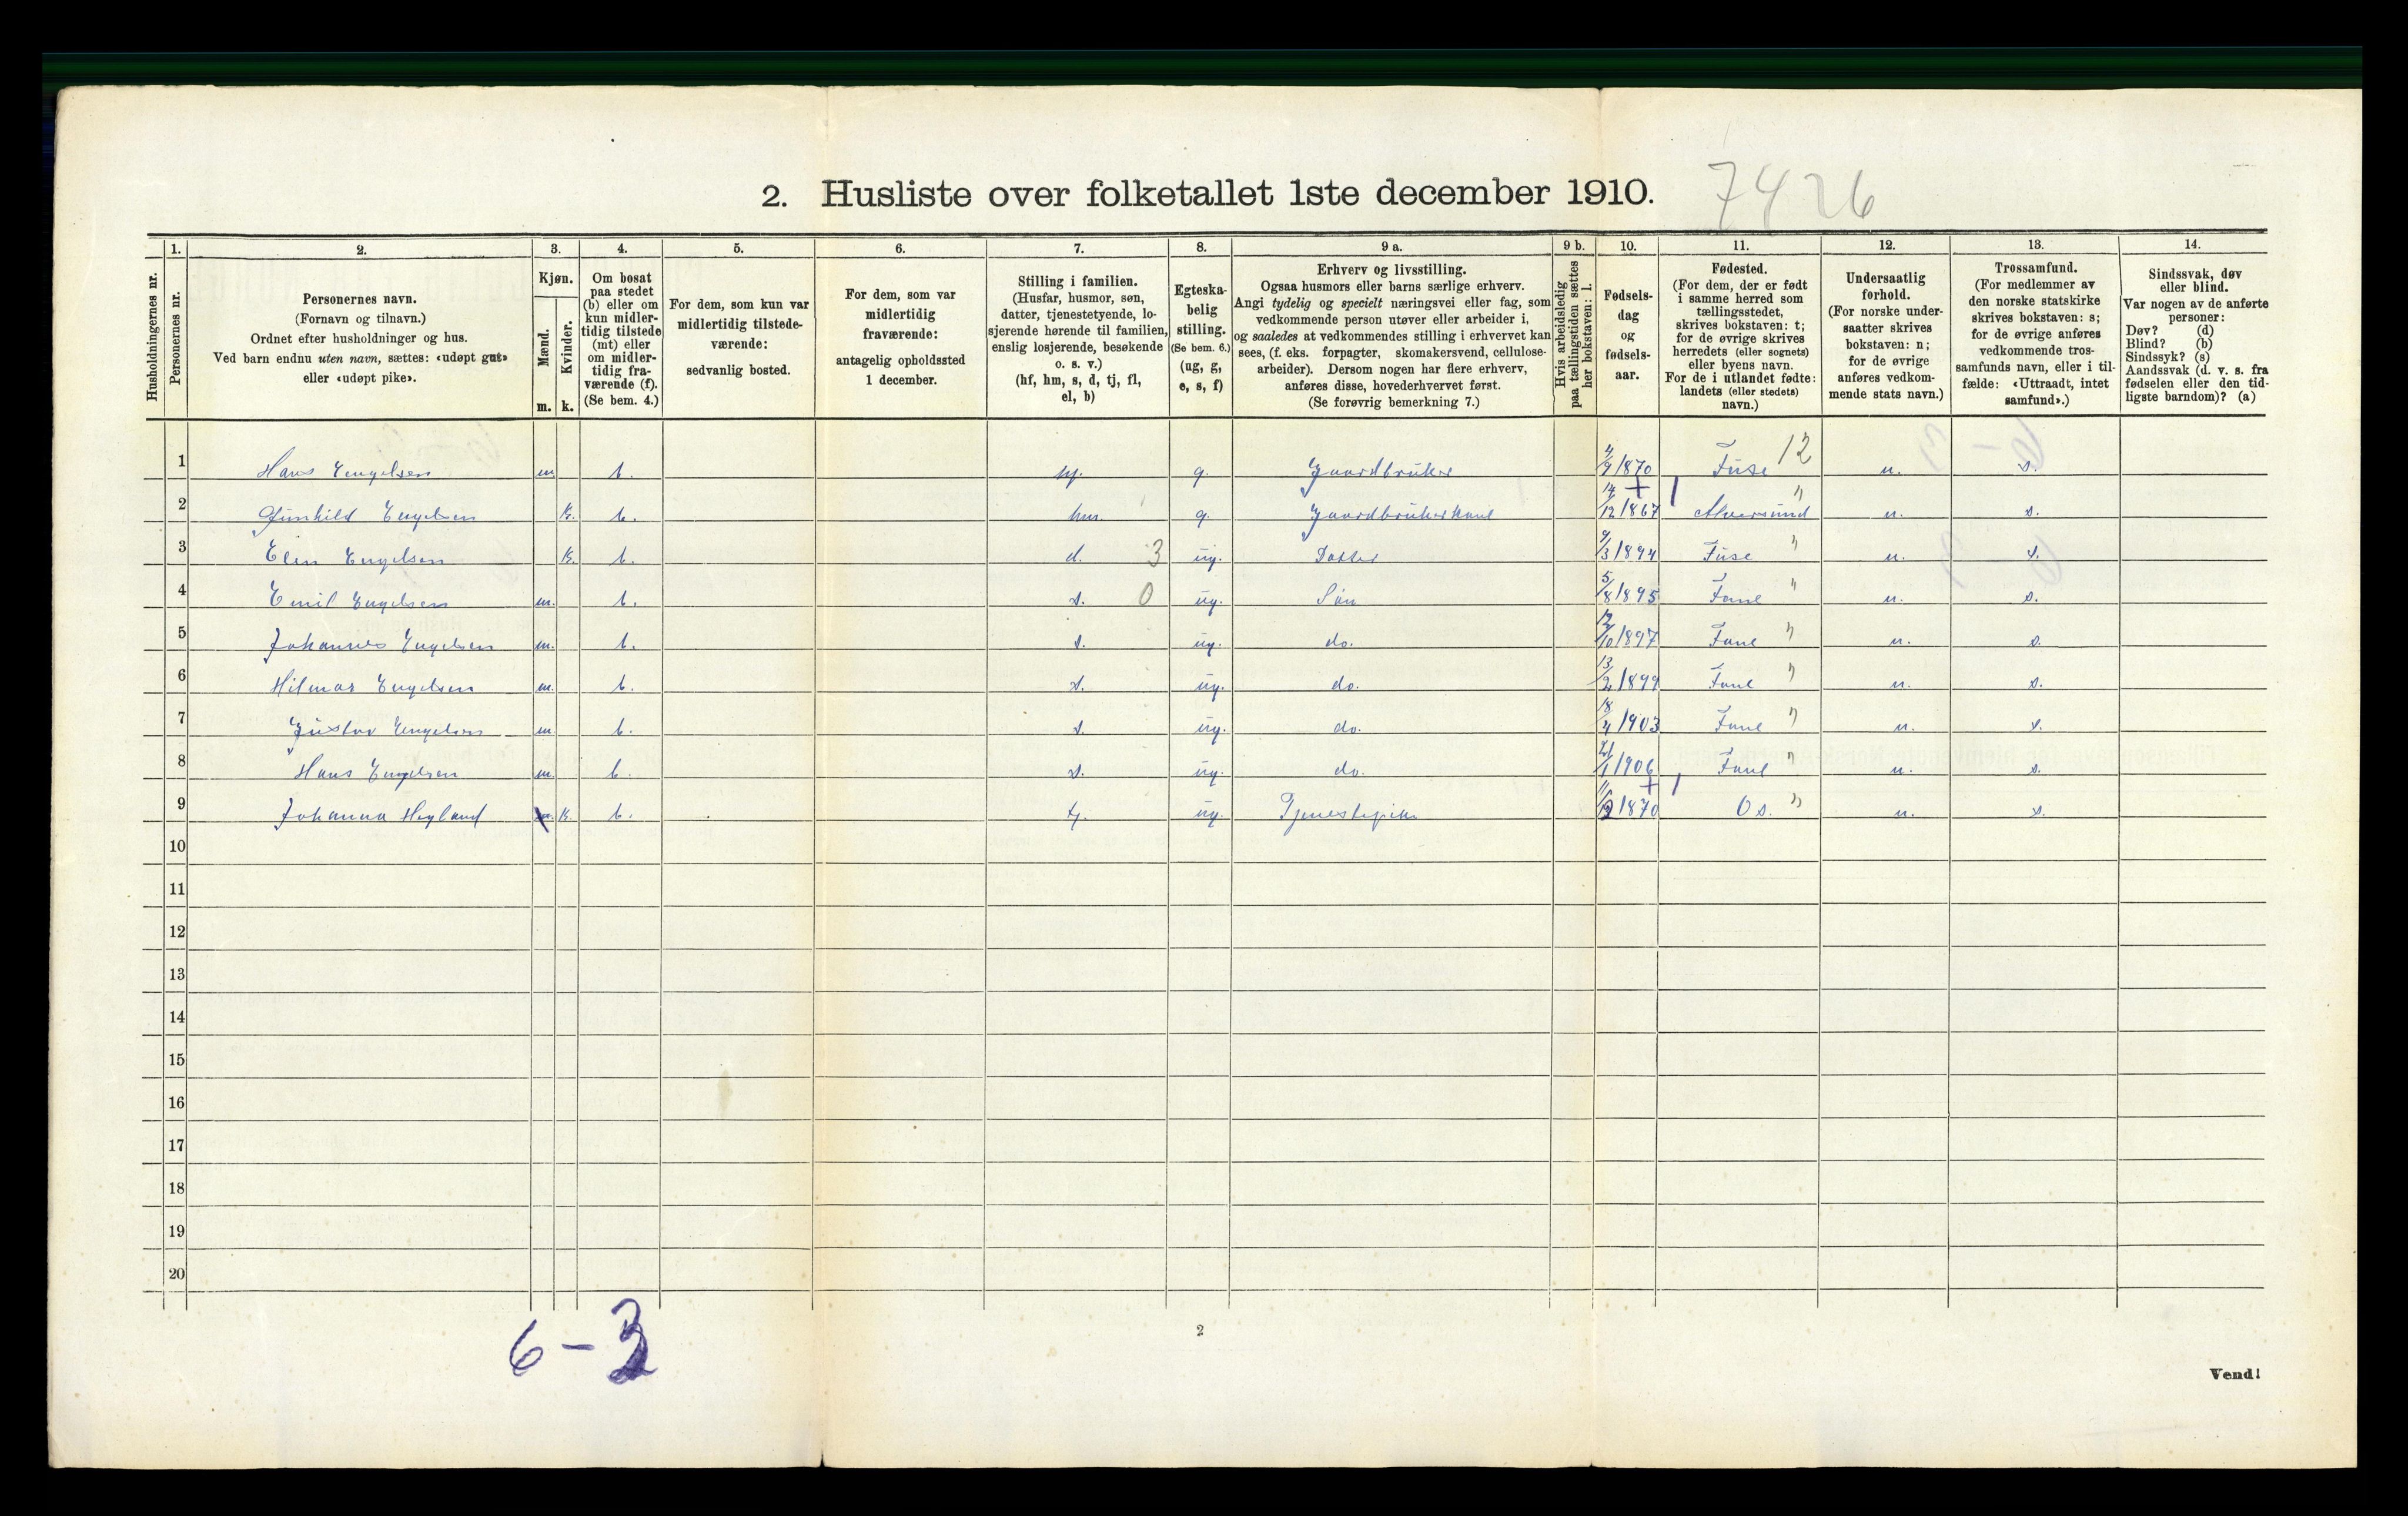 2. Husliste over folketallet 1ste december 1910.
7426
Husholdningernes nr.
1. Personernes nr.
2. Personernes navn. (Fornavn og tilnavn.) Ordnet efter husholdninger og hus. Ved barn endnu uten navn, sættes: «udøpt gut» eller «udøpt pike».
3. Kjøn. Mænd. m. Kvinder. k.
4. Om bosat paa stedet (b) eller om kun midlertidig tilstede (mt) eller om midlertidig fraværende (f). (Se bem. 4.)
5. For dem, som kun var midlertidig tilstedeværende: sedvanlig bosted.
6. For dem, som var midlertidig fraværende: antagelig opholdssted 1 december.
7. Stilling i familien. (Husfar, husmor, søn, datter, tjenestetyende, losjerende hørende til familien, enslig losjerende, besøkende o. s. v.) (hf, hm, s, d, tj, fl, el, b)
8. Egteskabelig stilling. (Se bem. 6.) (ug, g, e, s, f)
9 a. Erhverv og livsstilling. Ogsaa husmors eller barns særlige erhverv. Angi tydelig og specielt næringsvei eller fag, som vedkommende person utøver eller arbeider i, og saaledes at vedkommendes stilling i erhvervet kan sees, (f. eks. forpagter, skomakersvend, cellulosearbeider). Dersom nogen har flere erhverv, anføres disse, hovederhvervet først. (Se forøvrig bemerkning 7.)
9 b. Hvis arbeidsledig paa tællingstiden sættes her bokstaven: l.
10. Fødselsdag og fødselsaar.
11. Fødested. (For dem, der er født i samme herred som tællingsstedet, skrives bokstaven: t; for de øvrige skrives herredets (eller sognets) eller byens navn. For de i utlandet fødte: landets (eller stedets) navn.)
12. Undersaatlig forhold. (For norske undersaatter skrives bokstaven: n; for de øvrige anføres vedkommende stats navn.)
13. Trossamfund. (For medlemmer av den norske statskirke skrives bokstaven: s; for de øvrige anføres vedkommende trossamfunds navn, eller i tilfælde: «Uttraadt, intet samfund».)
14. Sindssvak, døv eller blind. Var nogen av de anførte personer: Døv? (d) Blind? (b) Sindssyk? (s) Aandssvak (d. v. s. fra fødselen eller den tidligste barndom)? (a)
1 Hans Engelsen m b. hf. g. Gaardbruker 4/9 1870 Fuse 12 n. s.
2 Gunhild Engelsen k. b. hm. g. Gaardbrukerkone 14/12 1867 Alversund " n. s.
3 Elen Engelsen k. b. d. 3 ug. Datter 9/3 1894 Fuse " n. s.
4 Emil Engelsen m. b. s. 0 ug. Søn 5/8 1895 Fane " n. s.
5 Johannes Engelsen m. b. s. ug. do. /10 1897 Fane " n. s.
6 Hilmar Engelsen m. b. s. ug. do. 13/2 1899 Fane " n. s.
7 Gustav Engelsen m b. s. ug. do. 18/4 1903 Fane " n. s.
8 Hans Engelsen m. b. s. ug. do. 21/1 1906 Fane " n. s.
9 Johanna Hegland k. b. tj. ug. Tjenestepike 1870 Os. " n. s.
10
11
12
13
14
15
16
17
18
19
20
6-3
2
Vend!